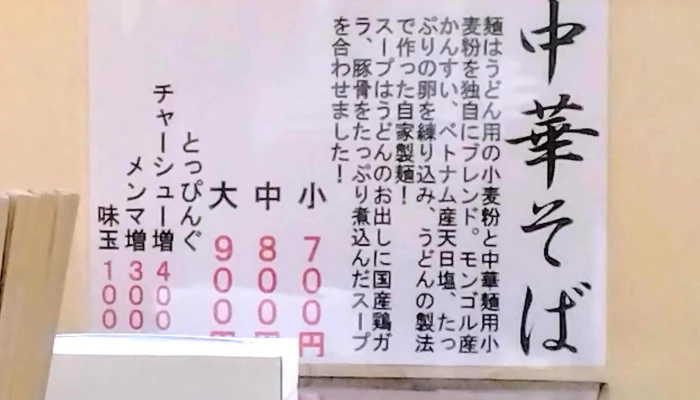 中華そば
麺はうどん用の小麦粉と中華麺用小
麦粉を独自にブレンド。モンゴル産
かんすい、ベトナム産天日塩、たっ
ぷりの卵を練り込み、うどんの製法
で作った自家製麺！
スープはうどんのお出しに国産鶏ガ
ラ、豚骨をたっぷり煮込んだスープ
を合わせました！
小 700円
中 800円
大 900円
とっぴんぐ
チャーシュー増 400
メンマ増 300
味玉 100